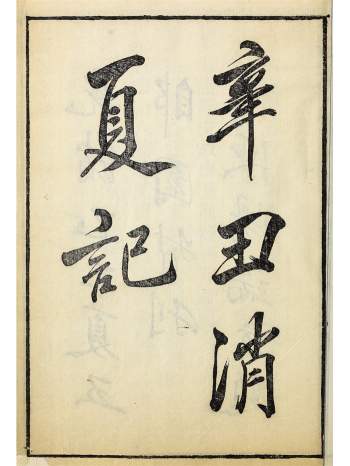 辛丑消
夏記